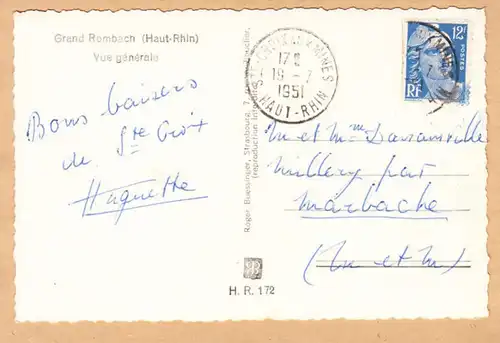 Grand Rombach (Haut-Rhin)
Vue générale
Bons baisers
de Ste Croix
Huguette
Roger Buessinger, Strasbourg, 7,
(reproduction interdite)
STE-CROIX-AUX-MINES
17
19-7
1951
HAUT-RHIN
12F
POSTES
RF
M et Mme
Millery par
Marbache
(M et M)
H. R. 172